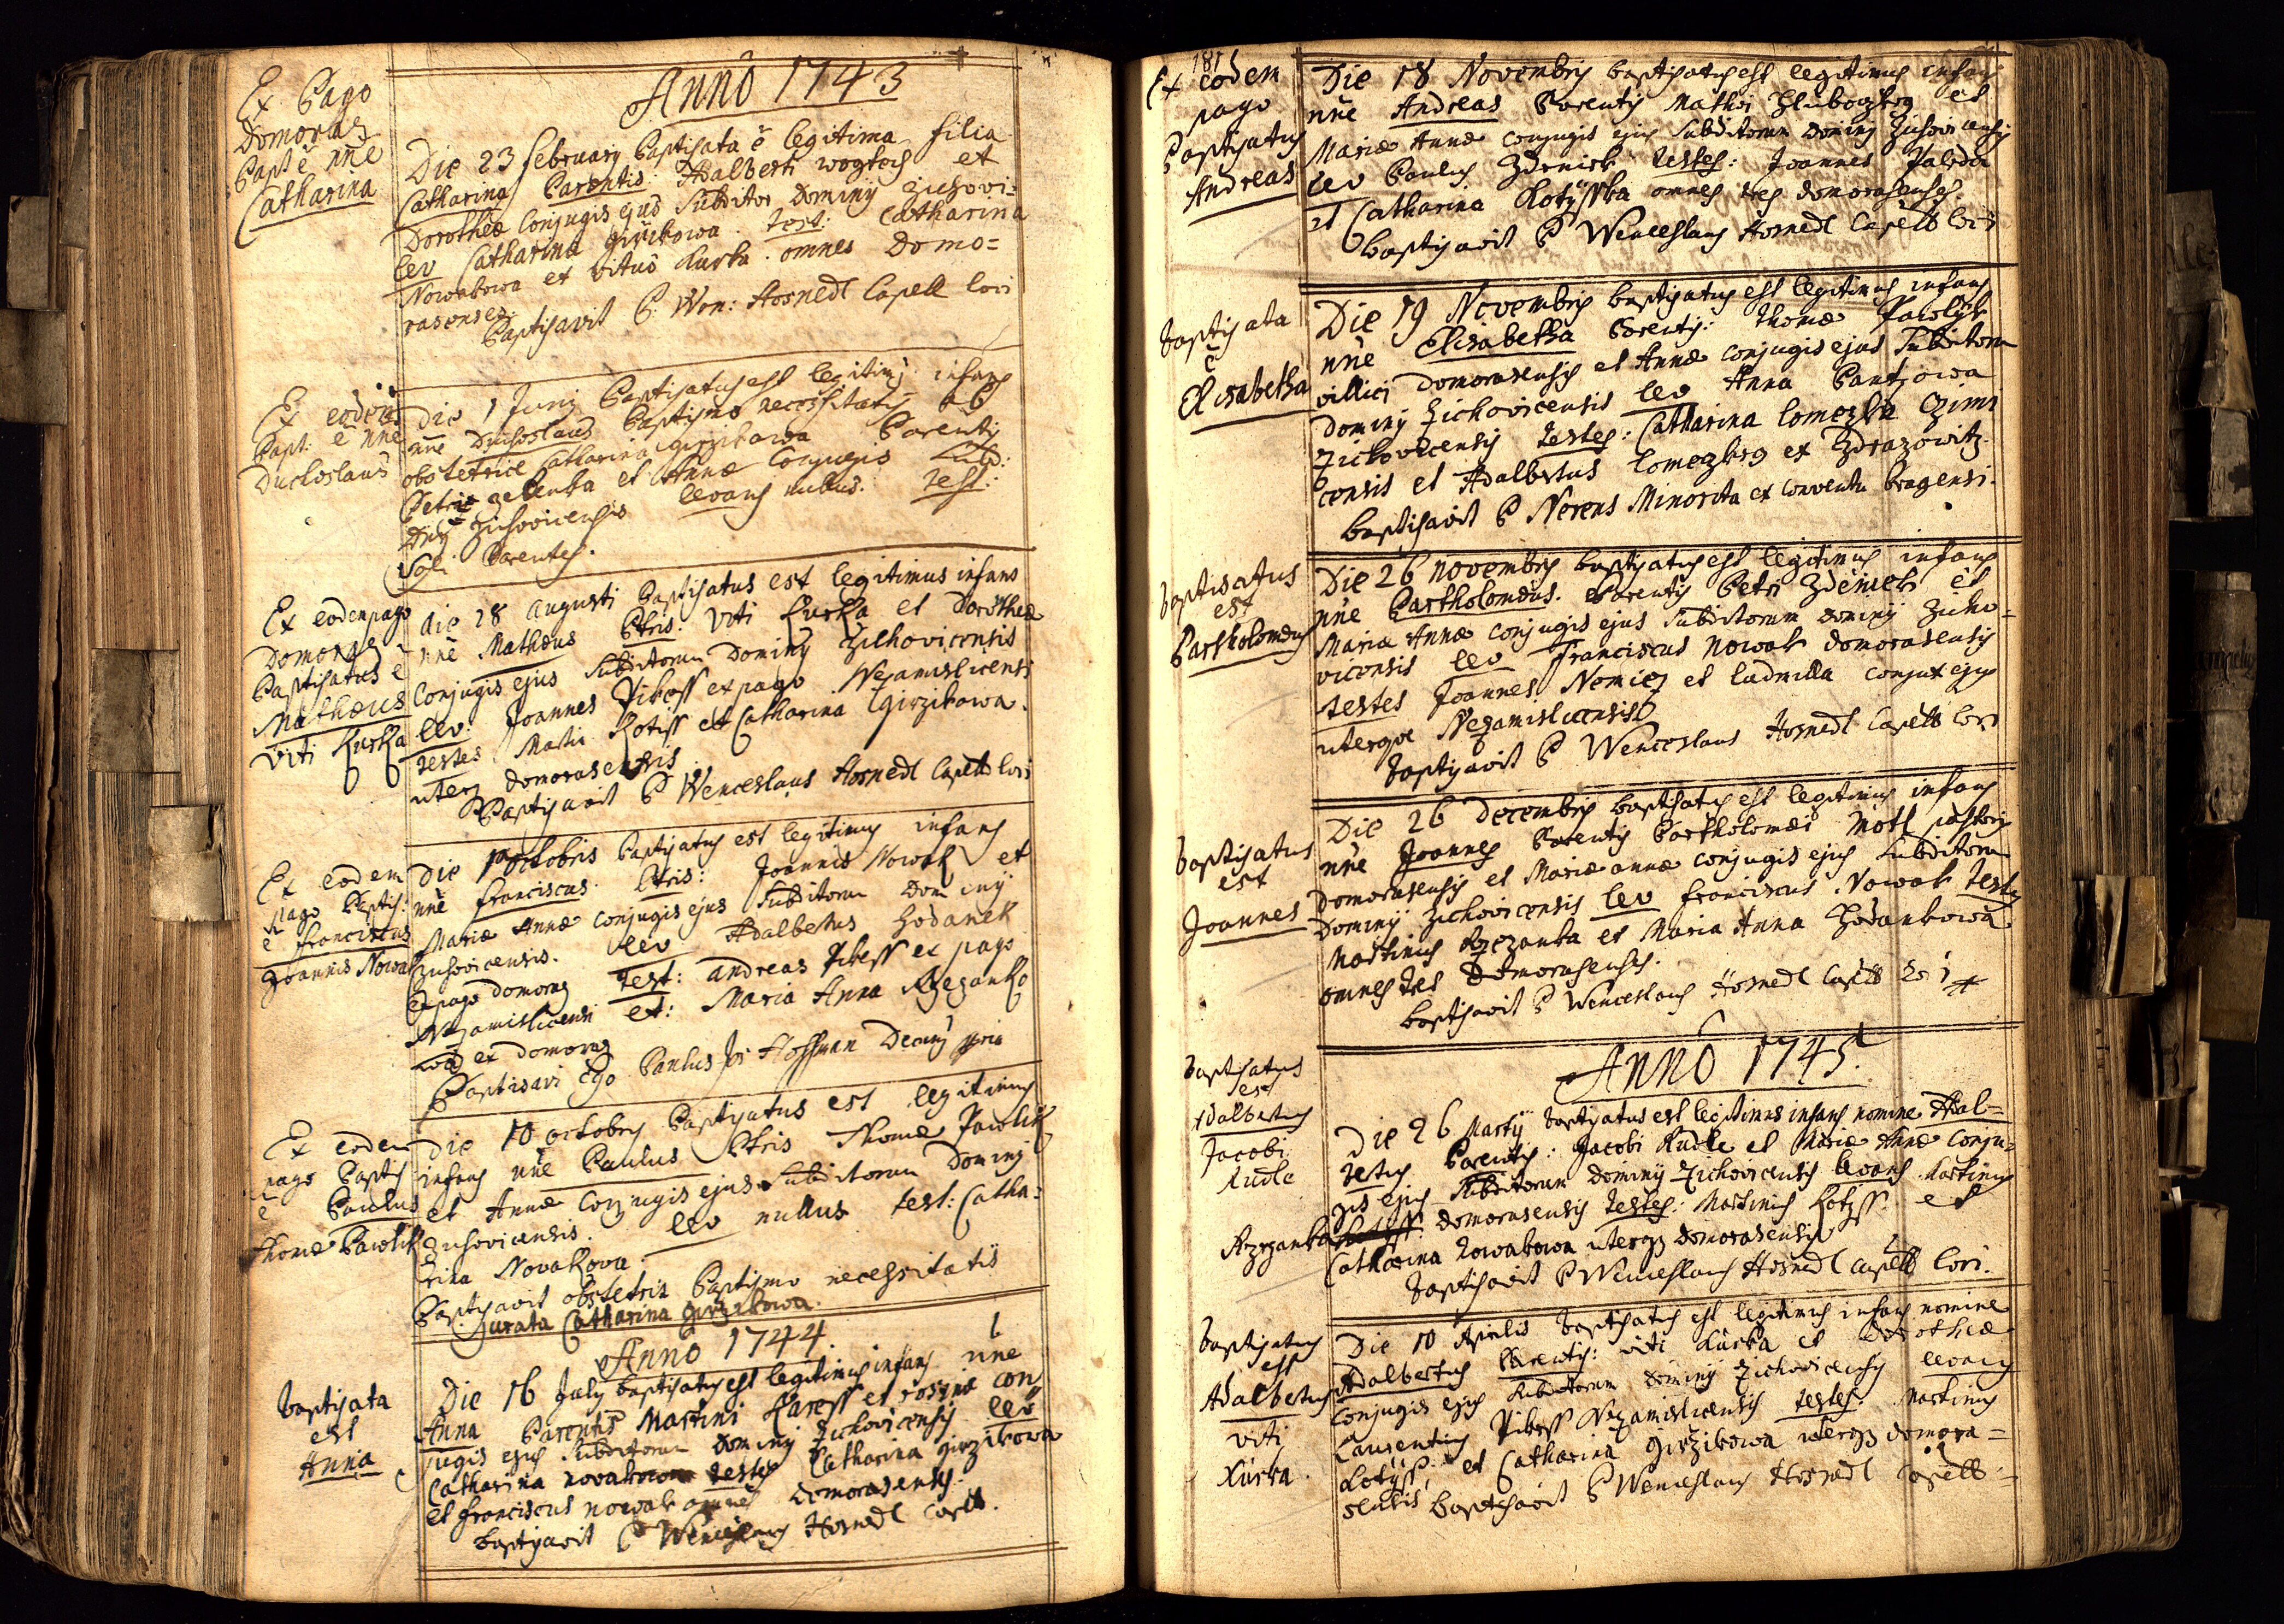 Anno 1743
Ex Pago
Domoraz
Bapt ē nn̄e
Catharina
Die 23 February Baptisata ē legitima filia
Catharina Parentis: Adalberti wogtech et
Dorotheæ Conjugis ejus Subditor Dominy Zichovi=
lev Catharina Girzikowa. test: Catharina
Nowakowa et Vitus Kurka. omnes Domo=
rasenses.
Baptisavit P: Wen: Hosnedl Capell loci
Ex eodem
Bapt: ē nn̄e
Duchoslaus
Die 1 Juny Baptisatus est legitimus infans
nn̄e Duchoslaus Baptismo necessitatis ab
obstetrice Catharina Girzikowa Parentis
Petri Zelenka et Annæ Conjugis Subd:
Dn̄y Zichovicensis levans nullus. Test:
Soli Parentes.
Ex eodem pago
Domoraz
Baptisatus ē
Mathæus
Viti Kurka
die 28 Augusti Baptisatus est legitimus infans
nn̄e Mathæus Ptris: Viti Kurka et Dorotheæ
Conjugis ejus Subditorum Dominy Zichovicensis
lev: Joannes Pikess ex pago Nezamislicensi
testes Martin Kotiss et Catharina Girzikowa.
uterq domorasensis
Baptisavit P Wenceslaus Hosnedl Capell loci
Ex eodem
pago Baptis:
ē Franciscus
Joannis Nowak
Die 1 octobris Baptisatus est legitimus infans
nn̄e Franciscus. Ptris: Joannis Nowak et
Mariæ Annæ Conjugis ejus Subditorum Dominy
Zichovicensis. lev Adalbertus Hodanek
ex pago domoraz Test: Andreas Pikess ex pago
Nezamislicensi et: Maria Anna Rzezanko
wa ex Domoraz
Baptisavi Ego Paulus Hoffman
Ex eodem
pago Baptis
ē Paulus
Thomæ Pawlik
Die 10 octobris Baptisatus est legitimus
infans nn̄e Paulus Ptris Thomæ Pawlik
et Annæ Conjugis ejus Subditorum Dominy
Zichovicensis. lev nullus test: Catha=
rina Novakova.
Baptisavit obstetrix Baptismo necessitatis
Jurata Catharina Girzikowa.
Anno 1744
baptisata
est
Anna
Die 16 July baptisatus est legitimus infans nn̄e
Anna Parentis Martini Karess et rosinæ con
jugis ejus Subditorum Dominy Zichovicensis lev
Catharina novakowa testes Catharina Girzikowa
et Franciscus nowak omnes domorasenses.
baptisavit P Wenceslaus Hosnedl Capell.
181
Ex eodem
pago
Baptisatus
Andreas
Die 18 Novembris baptisatus est legitimus infans
nn̄e Andreas Parentis Mathæi et
Mariæ Annæ Conjugis ejus Subditorum Dominy Zichovicensis
lev Paulus Zdeniek testes: Joannes
et Catharina Kotysska omnes tres domorasenses.
baptisavit P Wenceslaus Hosnedl Capell loci
baptisata
ē
Elisabetha
Die 19 Novembris baptisatus est legitimus infans
nn̄e Elisabetha Parentis: Thomæ Pawlik
villici Domorasensis et Annæ conjugis ejus Subditorum
Dominy Zichovicensis lev Anna Pantzowa
Zichovicensis testes: Catharina lomezka
censis et Adalbertus lomezky ex Zdrazowitz.
baptisavit P Nerens Minorita ex conventu Pragensi.
baptisatus
est
Bartholomæus
Die 26 novembris baptisatus est legitimus infans
nn̄e Bartholomæus. Parentis Petri Zdeniek et
Maria Annæ conjugis ejus Subditorum dominy Zicho=
vicensis lev Franciscus Nowak domorasensis
testes Joannes Nemicz et ludmilla conjux ejus
uterque Nezamislicensis
baptisavit P Wenceslaus Hosnedl Capell loci
baptisatus
est
Joannes
Die 26 Decembris baptisatus est legitimus infans
nn̄e Joannes Parentis Bartholomæi Motl pastoris
Domorasensis et Mariæ annæ conjugis ejus subditorum
Dominy Zichovicensis lev Franciscus Nowak testes
Martinus Rzezanka et Maria Anna Hodankowa.
omnes tres Domorasenses.
baptisavit P Wenceslaus Hosnedl Capell loci
Anno 1745.
baptisatus
est
Adalbertus
Jacobi
Kudle
Die 26 Marty baptisatus est legitimus infans nomine Adal=
bertus Parentis: Jacobi Kudle et Mariæ Annæ Conju=
gis ejus Subditorum Dominy Zichovicensis levans Martinus
Rzezanka domorasensis testes: Martinus Kotyss et
Catharina Nowakowa uterq domorasensis
baptisavit P Wenceslaus Hosnedl Capell loci.
baptisatus
est
Adalbertus
viti
Kurka.
Die 10 Aprilis baptisatus est legitimus infans nomine
Adalbertus Parentis: viti Kurka et Dorotheæ
Conjugis ejus Subditorum Dominy Zichovicensis levans
Laurentius Pikess Nezamislicensis testes: Martinus
Kotyss, et Catharina Girzikowa uterq domora=
sensis baptisavit P Wenceslaus Hosnedl Capell=